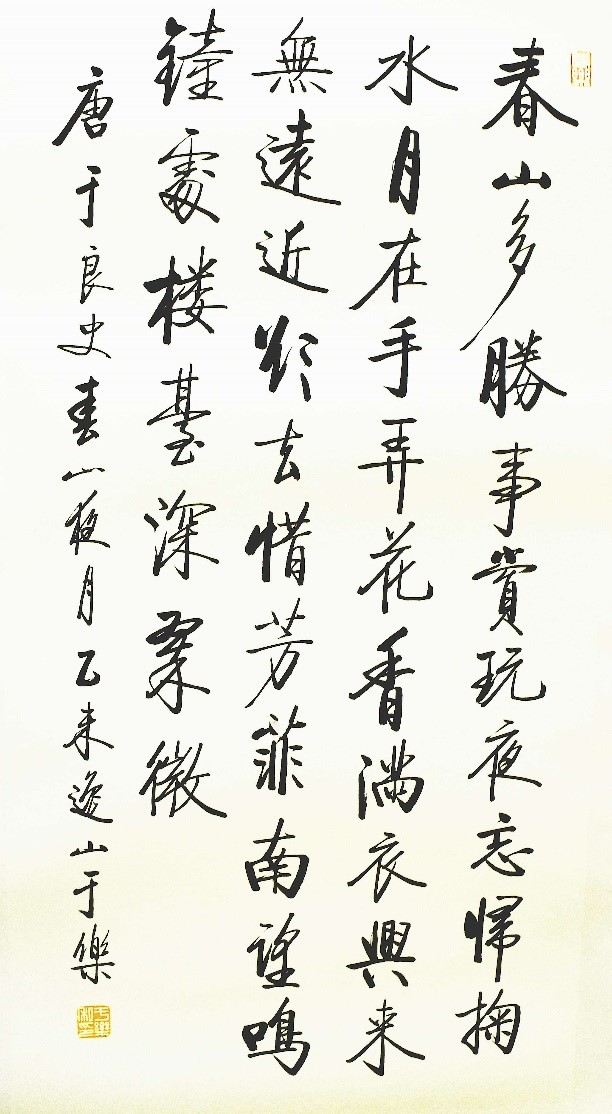 春山多勝事賞玩夜忘帰掬
水月在手弄花香滿衣興来
無遠近欲去惜芳菲南望鳴
鐘處楼臺深翠微
唐于良史春山夜月乙未逸山于樂